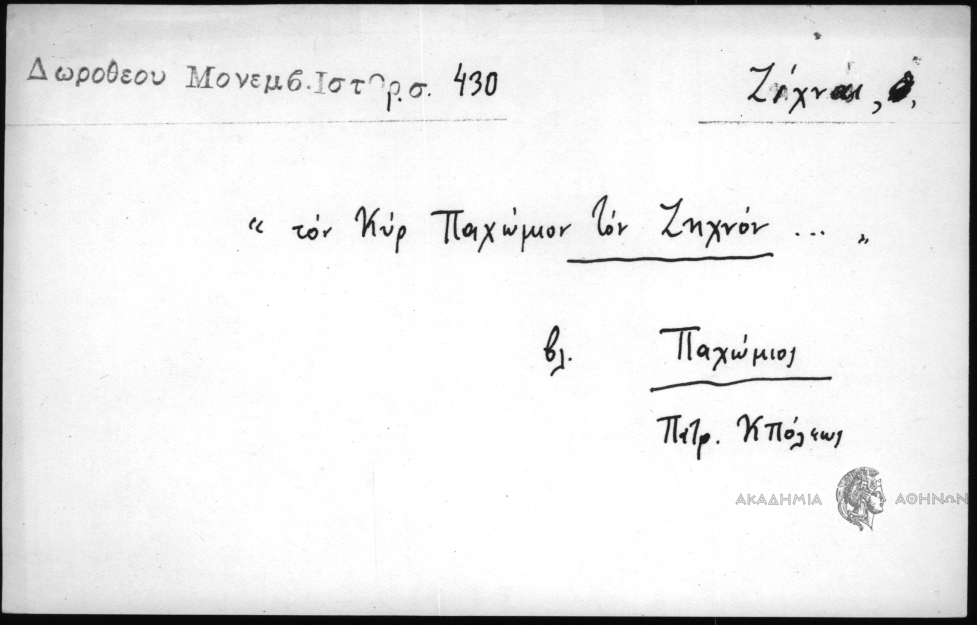 Δωροθεου Μονεμβ.Ιστορ.σ. 430
Ζίχναι, ὁ,
“ τόν Κύρ Παχώμιον τόν Ζηχνόν ... „
βλ. Παχώμιος
Πατρ. Κπόλεως
ΑΚΑΔΗΜΙΑ ΑΘΗΝΩΝ